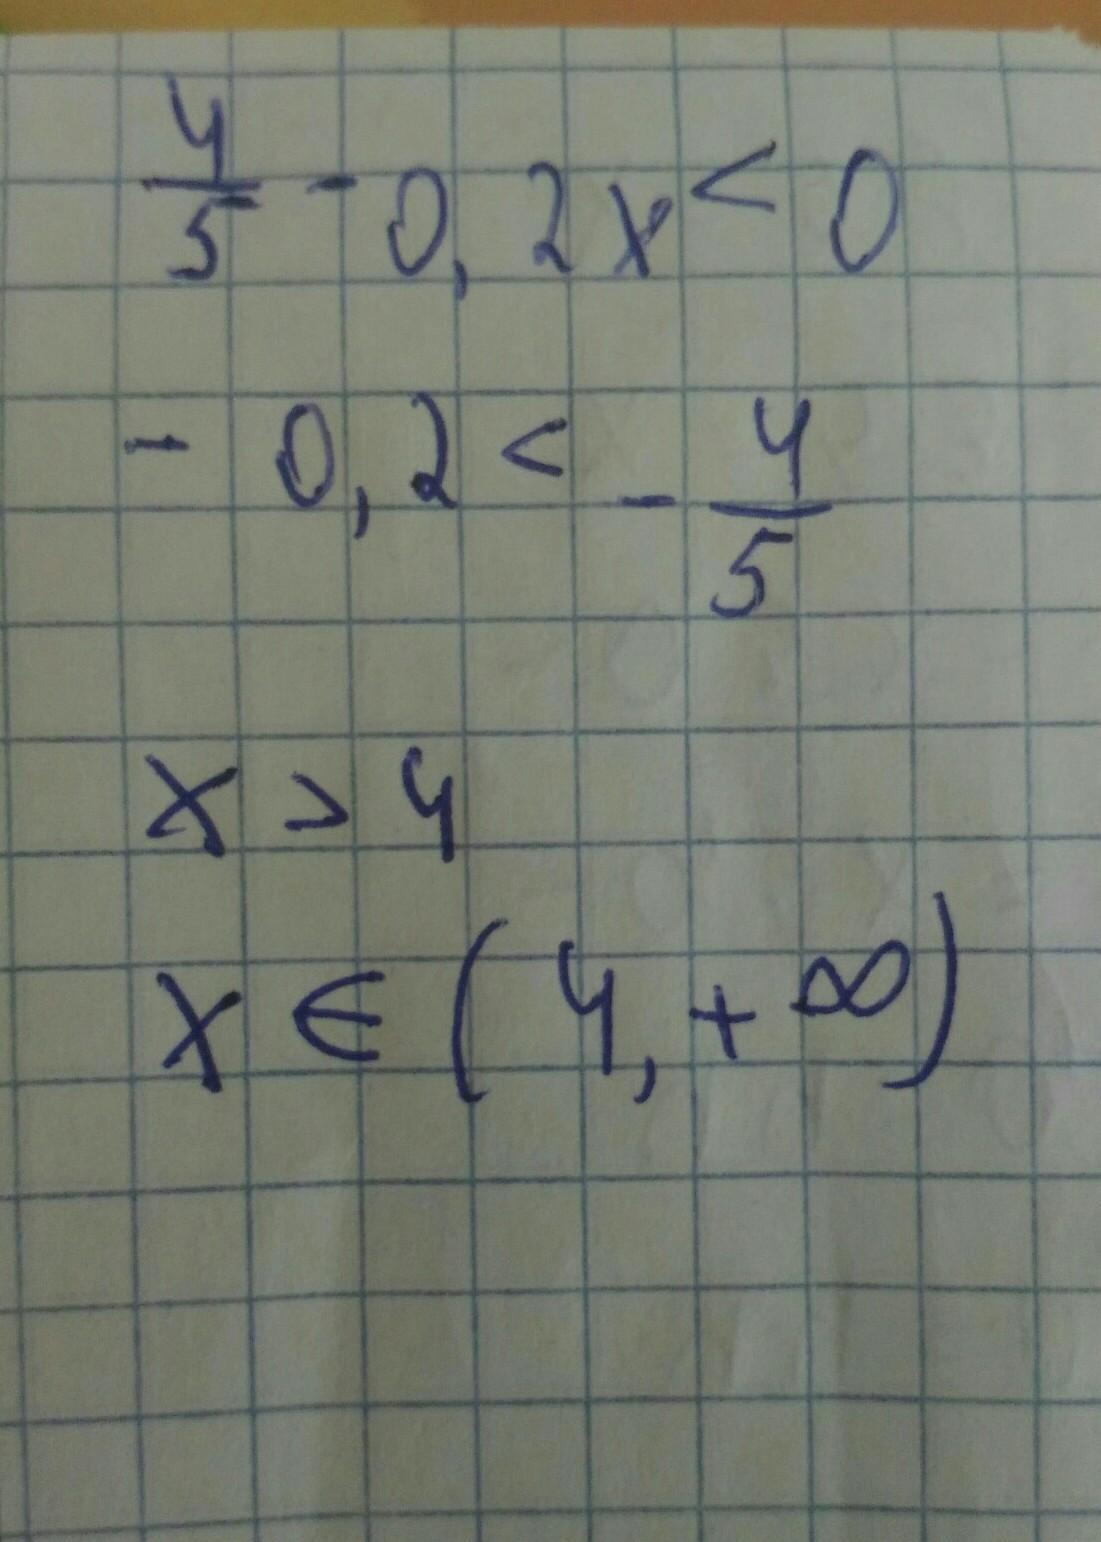 4/5 - 0,2x < 0
- 0,2 < - 4/5
x > 4
x ∈ (4, +∞)